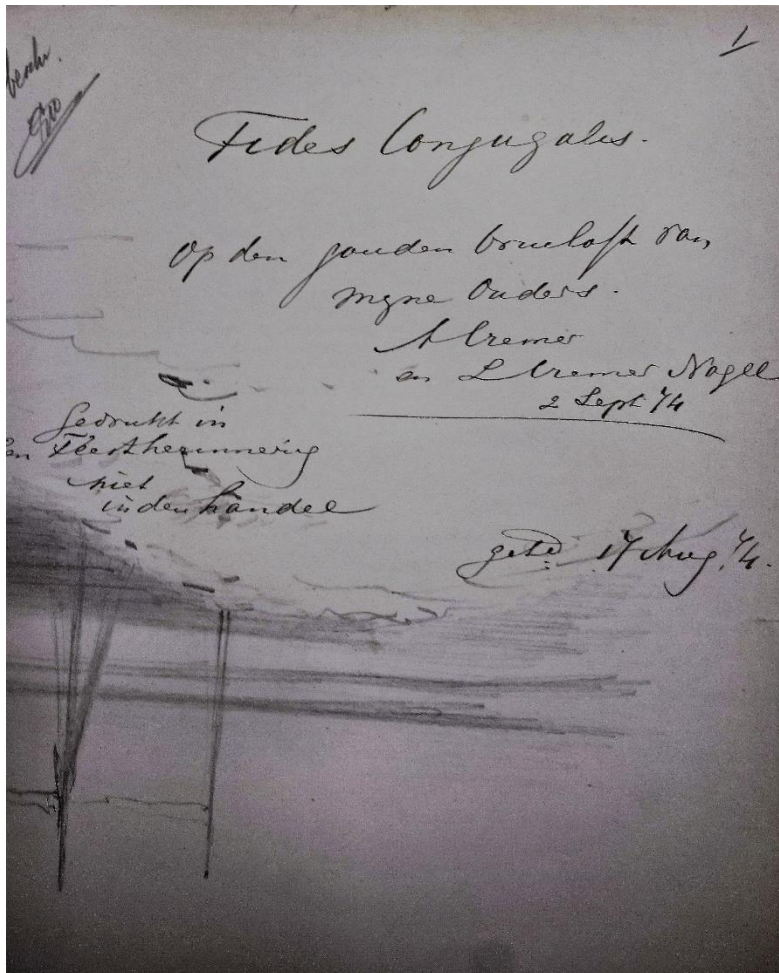 1
Fides Conjugalis.
Op den gouden bruiloft van
mijne Ouders.
A Cremer
en L Cremer Nagel
2 Sept 74
Gedrukt in
een Feestherinnering
niet
in den handel
get? 17 Aug. 74.